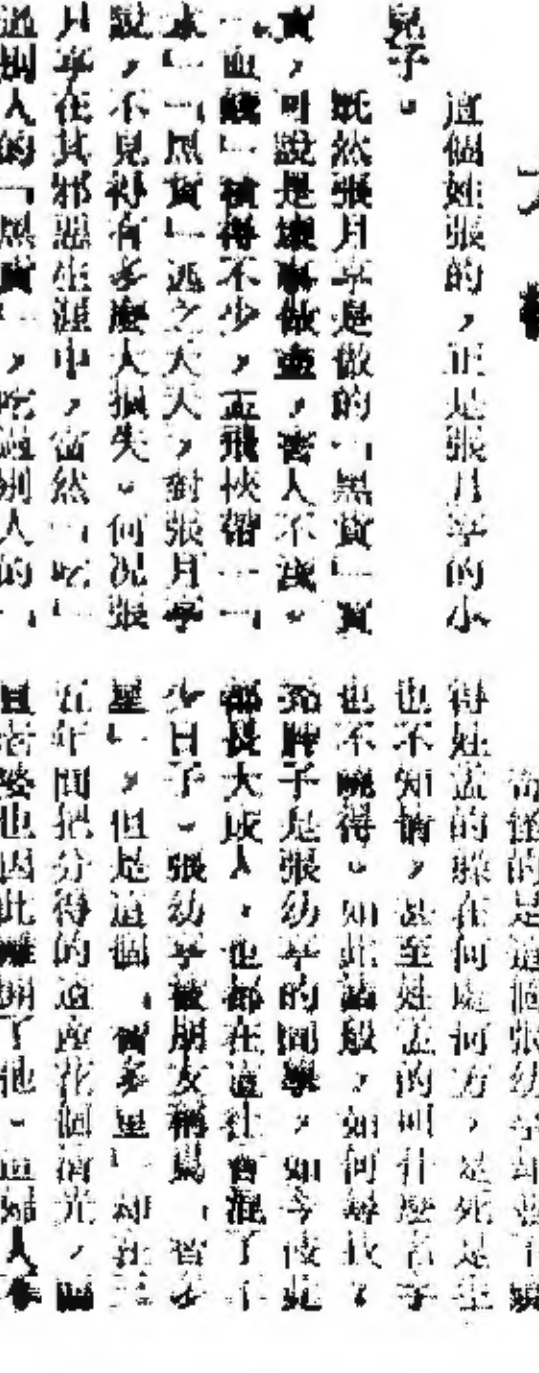 這個姓張的，正是張月亭的小
兒子。
既然張月亭是做的「黑貨」買
賣，可說是壞事做盡，害人不淺。
「血錢」積得不少，孟飛挾帶一
「黑貨」逃之夭夭，對張月亭
說，不見得有多麼大損失。何況張
月亭在其邪惡生涯中，當然「吃」
過別人的「黑貨」，吃過別人的「
奇怪的是這個張幼亭却並不
得姓孟的躲在何處何方，是死是生
也不知情，甚至姓孟的叫什麼名字
也不曉得。如此這般，如何尋找？
子是張幼亭的同學，如今彼此
都長大成人，也都在這社會混了不
少日子。張幼亭被朋友稱為「智多
星」，但是這個「智多星」却在三
五年間把分得的遺產花個精光，
且老婆也因此離開了他。這婦人